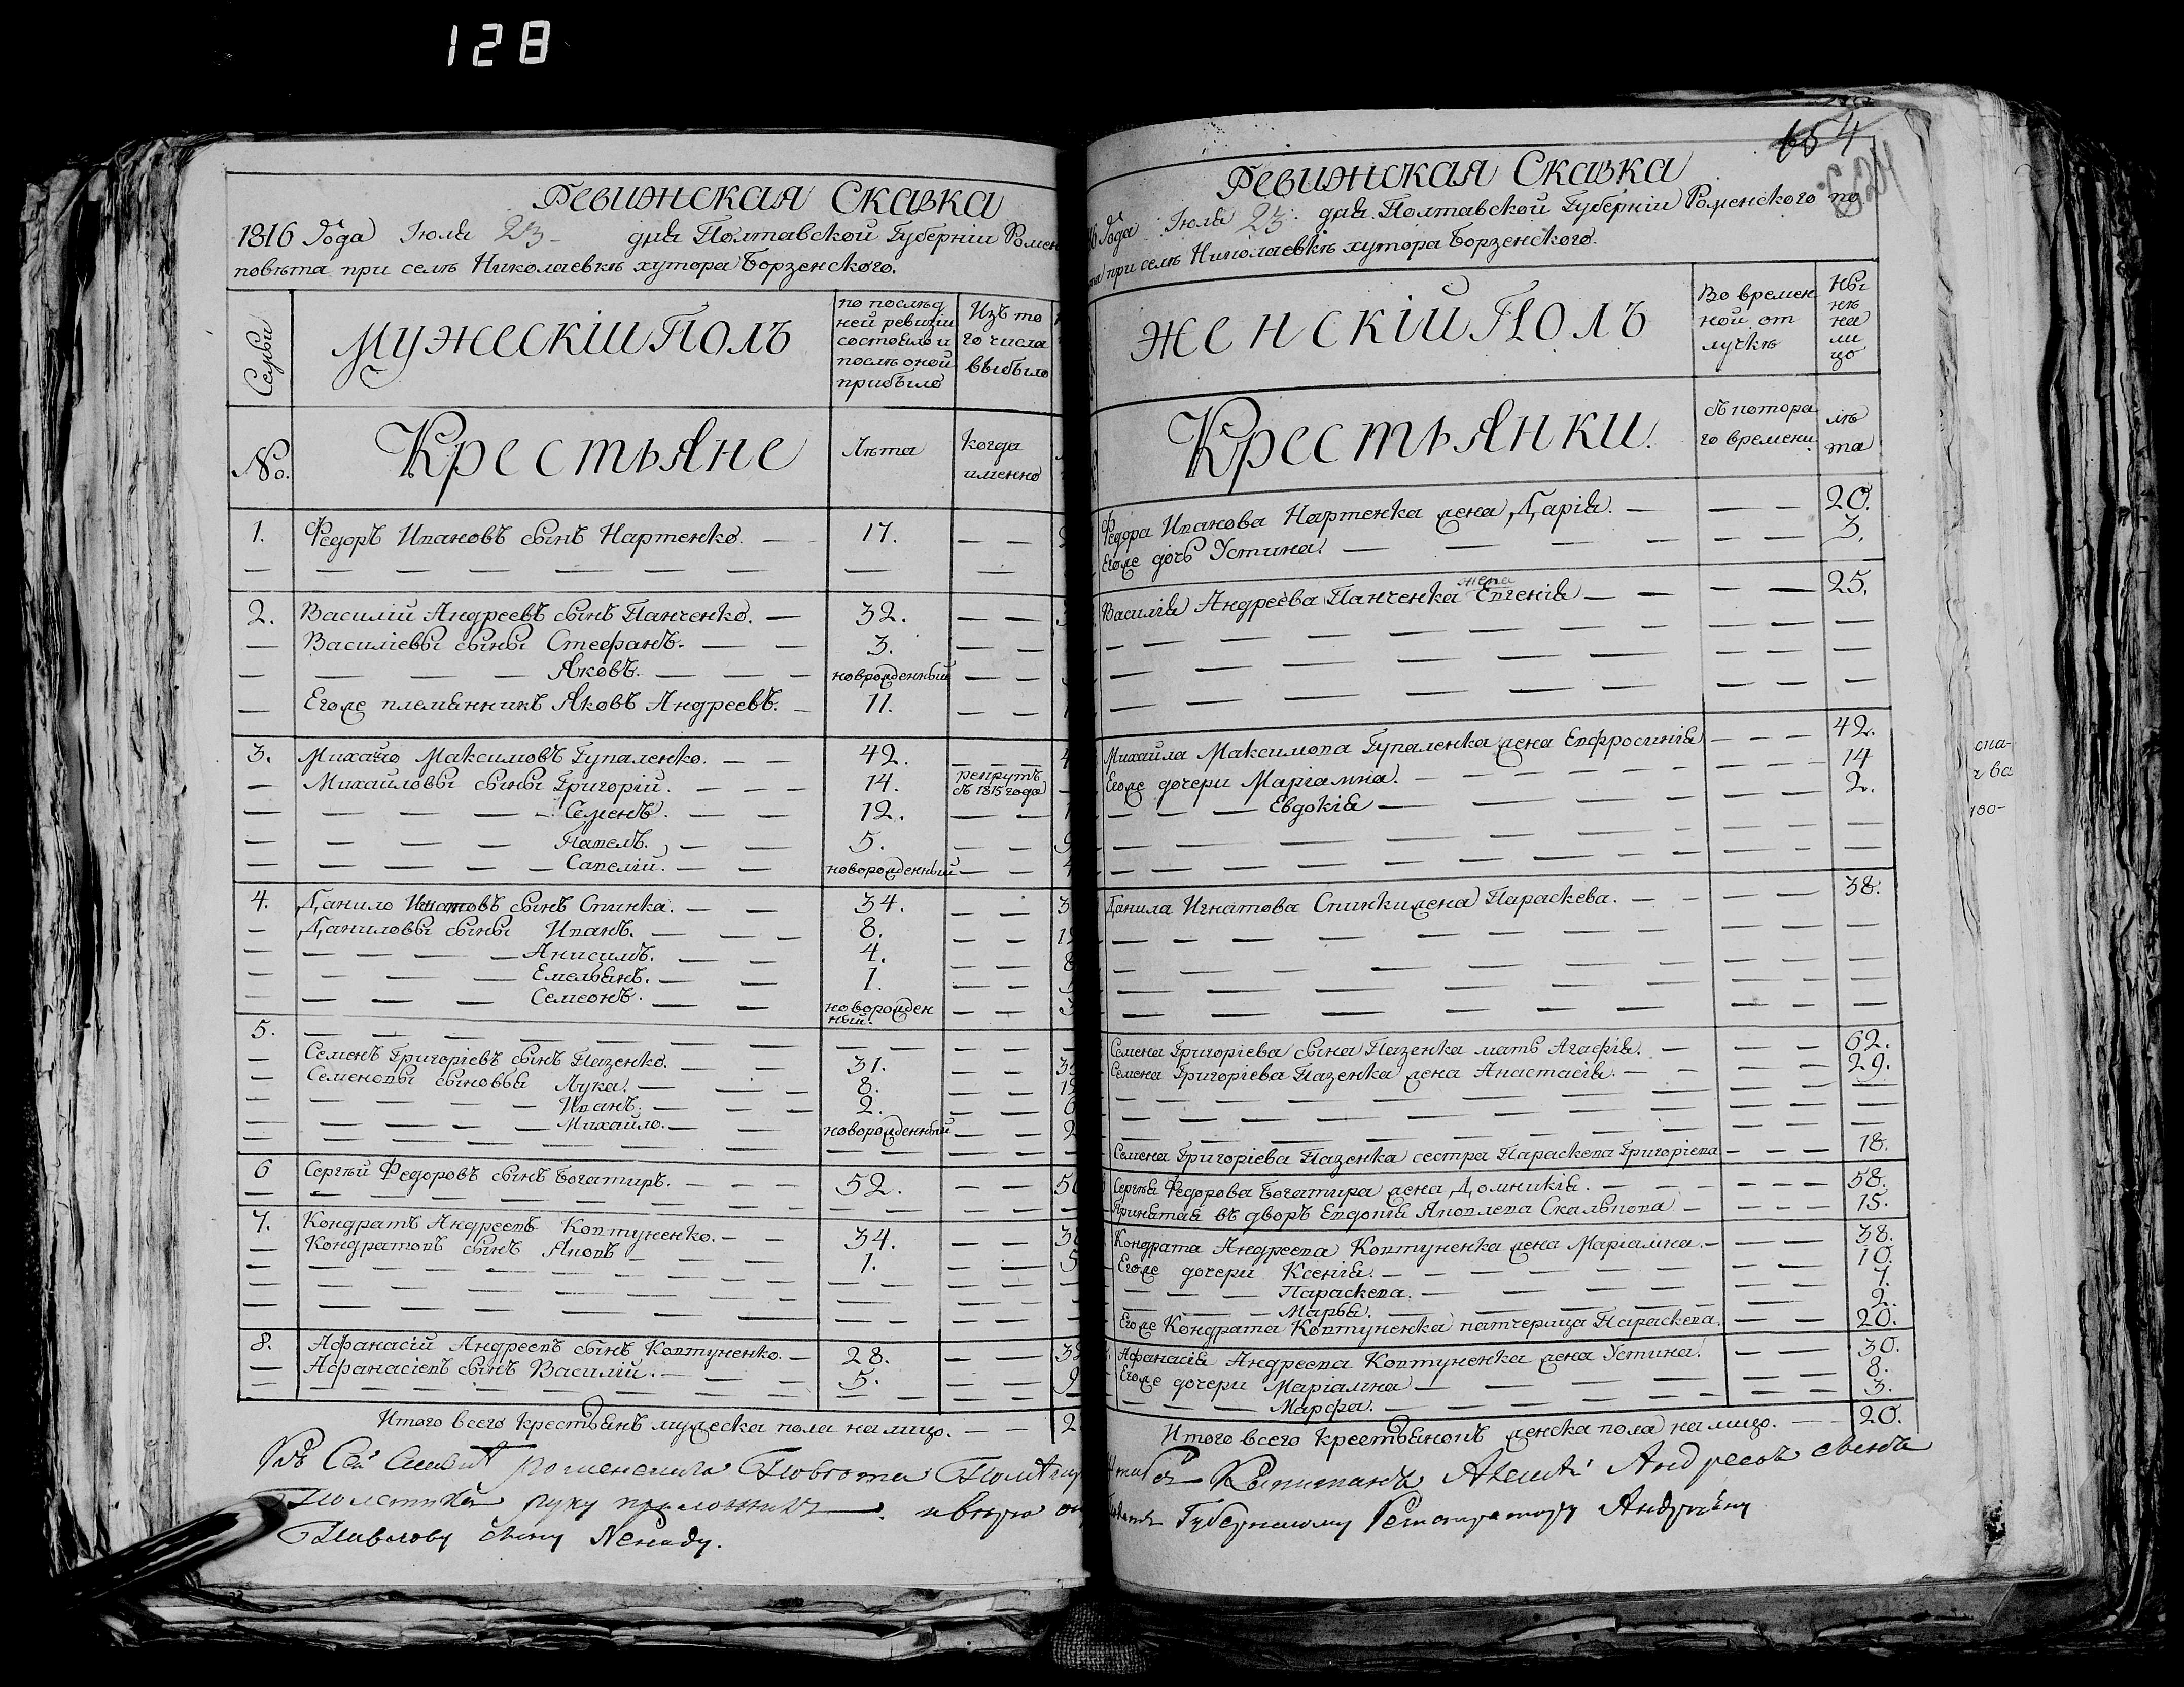 128
Ревижская Сказка
1816 Года Июля 23 дня Полтавской Губерніи Ромен
повѣта при селѣ Николаевкѣ хутора Борзенского.
Семьи
Мужескій Полъ
по послѣд
ней ревизіи
состояло и
послѣ оной
прибыло
Изъ то
го числа
выбыло
No.
Крестьяне
Лѣта
Когда
именно
1. Федоръ Ивановъ сынъ Нартенко. — 17. — —
2. Василій Андреевъ сынъ Панченко. — 32. — —
— Василіевы сыны Стефанъ. — — 3. — —
— — — — Яковъ. — — — новрожденный — —
— Егоже племянникъ Яковъ Андреевъ. — 11. — —
3. Михайло Максимовъ Гупаленко. — — 42. — — —
— Михайловы сыны Григорій. — — — 14. рекрутъ
съ 1815 года
— — — — — Семенъ. — — 12. — —
— — — — — Павелъ. — — 5. — —
— — — — — Савелій. — — новорожденный — —
4. Данило Игнатовъ сынъ Спинка. — — 34. — —
— Даниловы сыны Иванъ. — — — 8. — —
— — — — — Анисимъ. — — 4. — —
— — — — Емельянъ. — — 1. — —
— — — — Семеонъ. — — новорожден
ный. — —
5. — — — — — —
— Семенъ Григоріевъ сынъ Пазенко. — — 31. — —
— Семеновы сыновья Лука. — — — 8. — —
— — — — — Иванъ. — — — 2. — —
— — — — — Михайло. — — новорожденный — —
6 Сергѣй Федоровъ сынъ Богатиръ. — — — 52. — —
7. Кондратъ Андреевъ Ковтуненко. — — 34. — —
— Кондратовъ сынъ Яковъ — — — 1. — —
8. Афанасій Андреевъ сынъ Ковтуненко. — 28. — —
— Афанасіевъ сынъ Василій. — — — 5. — —
Итого всего крестьянъ мужеска пола на лицо. — — 2
Павлову сыну
руку приложилъ
654
Ревижская Сказка
16 Года Июля 23. дня Полтавской Губерніи Роменского по
та при селѣ Николаевкѣ хутора Борзенского.
Женскій Полъ
Во времен
ной от
лучкѣ
Ны
нѣ
на
ли
цо
Крестьянки.
съ котора
го времени.
лѣ
та
Федора Иванова Нартенка жена Дарія. — — — — 20.
Егоже дочь Устина. — — — — — — 3.
жена
Василія Андреева Панченка Евгенія — — — — 25.
Михайла Максимова Гупаленка жена Евфросинія — — — 42.
Егоже дочери Маріамна. — — — — — — 14
— — — Евдокія — — — — — 2.
Данила Игнатова Спинки жена Параскева. — — — — 38.
Семена Григоріева сына Пазенка мать Агафія. — — — — 62.
Семена Григоріева Пазенка жена Анастасія. — — — — 29.
Семена Григоріева Пазенка сестра Параскева Григоріева — — — 18.
Сергѣя Федорова Богатира жена Домникія. — — — — — 58.
Принятая въ дворъ Евдокія Яковлева Скальнова — — — — 15.
Кондрата Андреева Ковтуненка жена Маріамна. — — — 38.
Егоже дочери Ксенія. — — — — — — 10.
— — — Параскева. — — — — — — 7.
— — — Марья. — — — — — — 2.
Егоже Кондрата Ковтуненка патчерица Параскева. — — 20.
Афанасія Андреева Ковтуненка жена Устина. — — 30.
Егоже дочери Маріамна — — — — — — 8.
— — — Марфа. — — — — — — 3.
Итого всего крестьянокъ женска пола на лицо. — — 20.
Андреевъ сынъ
Губернскому Регистратору Андрѣяну